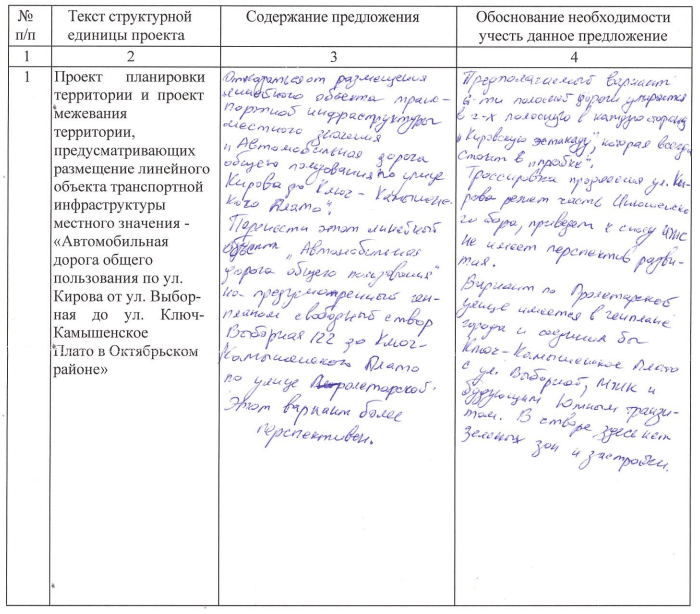 № п/п
Текст структурной единицы проекта
Содержание предложения
Обоснование необходимости учесть данное предложение
1
2
3
4
1
Проект планировки
территории и проект
межевания
территории,
предусматривающих
размещение линейного
объекта транспортной
инфраструктуры
местного значения -
«Автомобильная
дорога общего
пользования по ул.
Кирова от ул. Выбор-
ная до ул. Ключ-
Камышенское
Плато в Октябрьском
районе»
Отказаться от размещения
линейного объекта транс-
портной инфраструктуры
местного значения
„Автомобильная дорога
общего пользования по улице
Кирова до Ключ-Камышенс-
кого Плато".
Перенести этот линейный
объект „Автомобильная
дорога общего пользования"
на предусмотренный ген-
планом свободный створ
Выборная 122 до Ключ-
Камышенского Плато
по улице Пролетарской.
Этот вариант более
перспективен.
Предполагаемый вариант
4-ти полосной дороги упирается
в 2-х полосную в каждую сторону
„Кировскую эстакаду", которая всегда
стоит в „пробке".
Трассировка продления ул. Ки-
рова режет часть Инюшенско-
го бора, приведет к сносу ИЖС
Не имеет перспектив разви-
тия.
Вариант по Пролетарской
улице имеется в генплане
города и соединил бы
Ключ-Камышенское Плато
с ул. Выборной, МЖК и
будующим Южным транзи-
том. В створе здесь нет
зеленых зон и застройки.